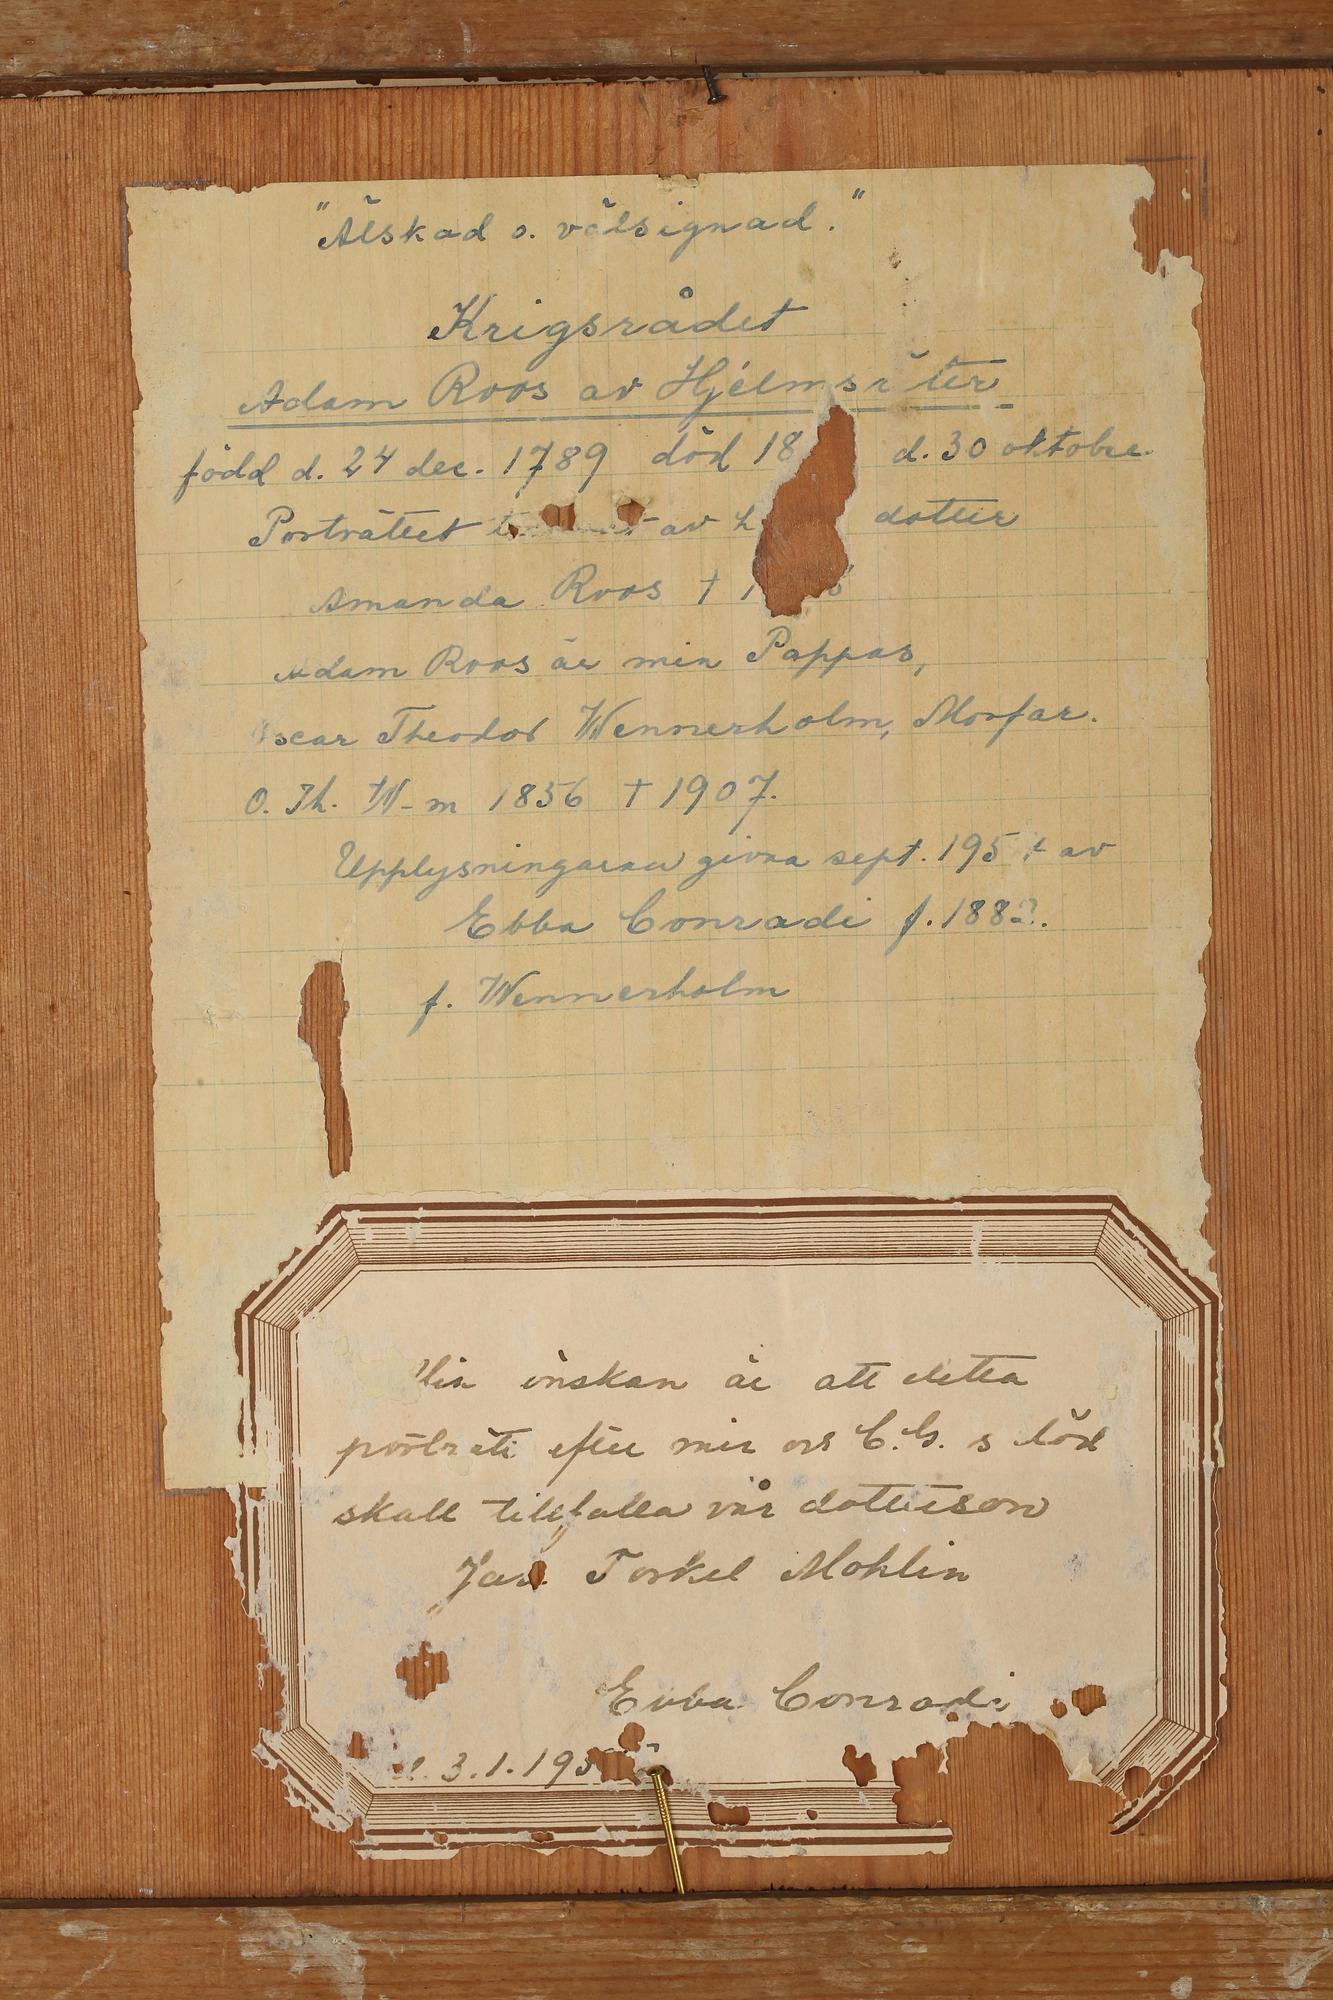 "Älskad o. välsignad."
Krigsrådet
Adam Roos av Hjelmsäter
född d. 24 dec. 1789 död 18 d. 30 oktober.
Porträttet av dotter
Amanda Roos †
Adam Roos är min Pappas,
Oscar Theodor Wennerholm, Morfar.
O. Th. W-m 1856 † 1907.
Upplysningarna givna sept. 195 av
Ebba Conradi f. 188
f. Wennerholm
Min önskan är att detta
porträtt efter min och C.G. s död
skall tillfalla vår dotterson
Jan Torkel Mohlin
Ebba Conradi
d. 3.1.195